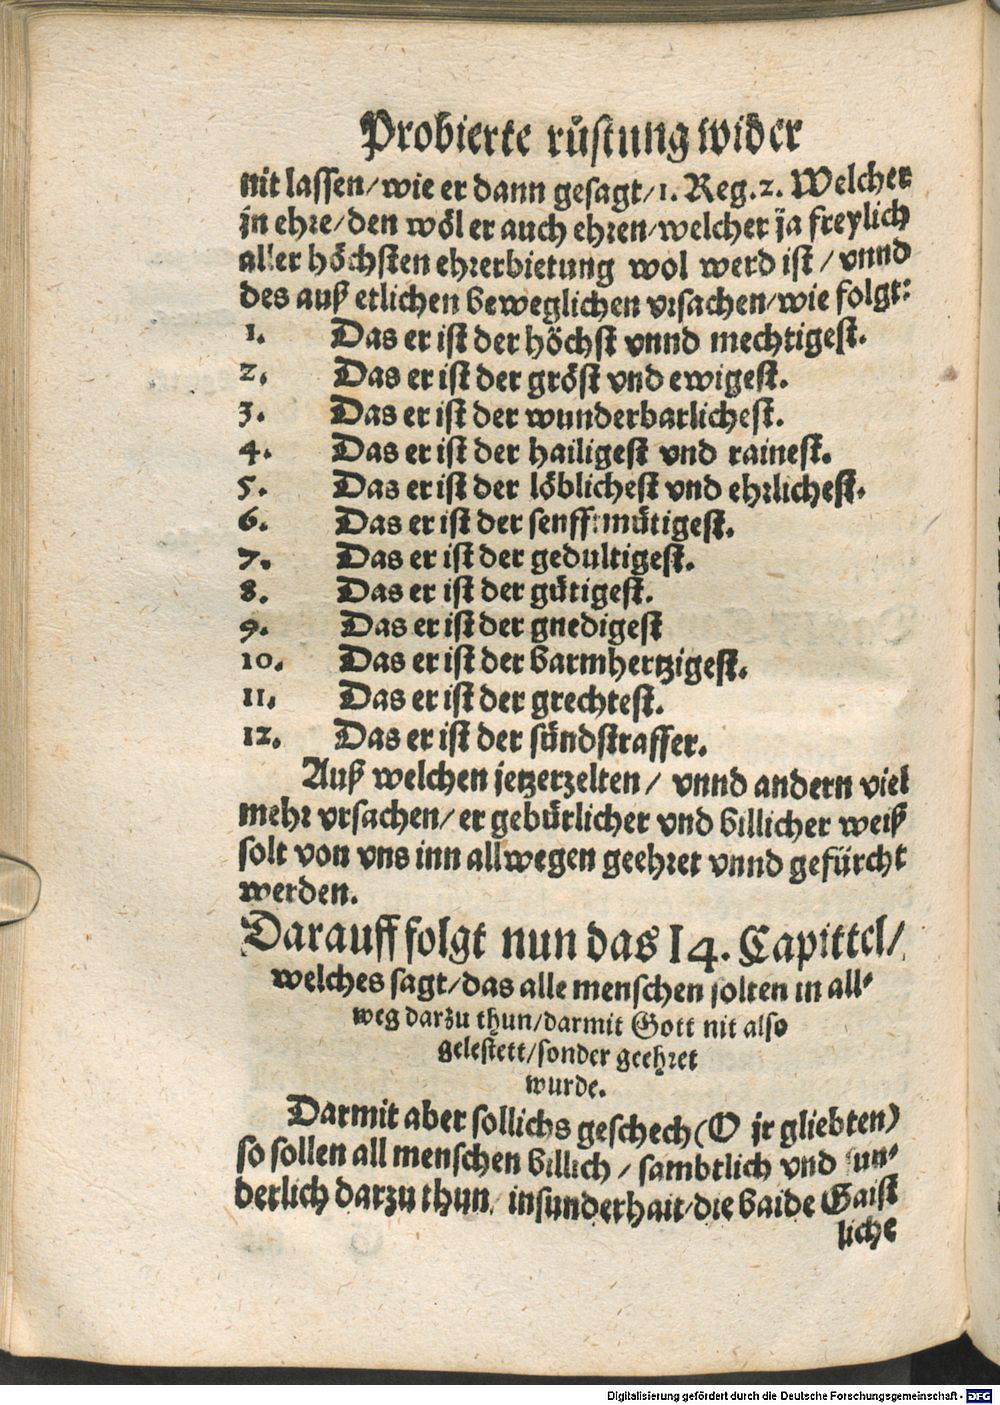 Probierte rüstung wider
nit lassen/wie er dann gesagt/1. Reg.2. Welcher
jn ehre/den wöl er auch ehren/welcher ja freylich
aller höchsten ehrerbietung wol werd ist/vnnd
des auß etlichen beweglichen vrsachen/wie folgt:
1. Das er ist der höchst vnnd mechtigest.
2. Das er ist der gröst vnd ewigest.
3. Das er ist der wunderbarlichest.
4. Das er ist der hailigest vnd rainest.
5. Das er ist der löblichest vnd ehrlichest.
6. Das er ist der senfftmütigest.
7. Das er ist der gedultigest.
8. Das er ist der gütigest.
9. Das er ist der gnedigest
10. Das er ist der barmhertzigest.
11. Das er ist der grechtest.
12. Das er ist der sündstraffer.
Auß welchen jetzerzelten/ vnnd andern viel
mehr vrsachen/er gebürlicher vnd billicher weiß
solt von vns inn allwegen geehret vnnd gefürcht
werden.
Darauff folgt nun das 14. Capittel/
welches sagt/das alle menschen solten in all-
weg darzu thun/darmit Gott nit also
gelestett/sonder geehret
wurde.
Darmit aber sollichs geschech (O jr gliebten)
so sollen all menschen billich/sambtlich vnd sun-
derlich darzu thun/insunderhait/die baide Gaist
liche
Digitalisierung gefördert durch die Deutsche Forschungsgemeinschaft - DFG